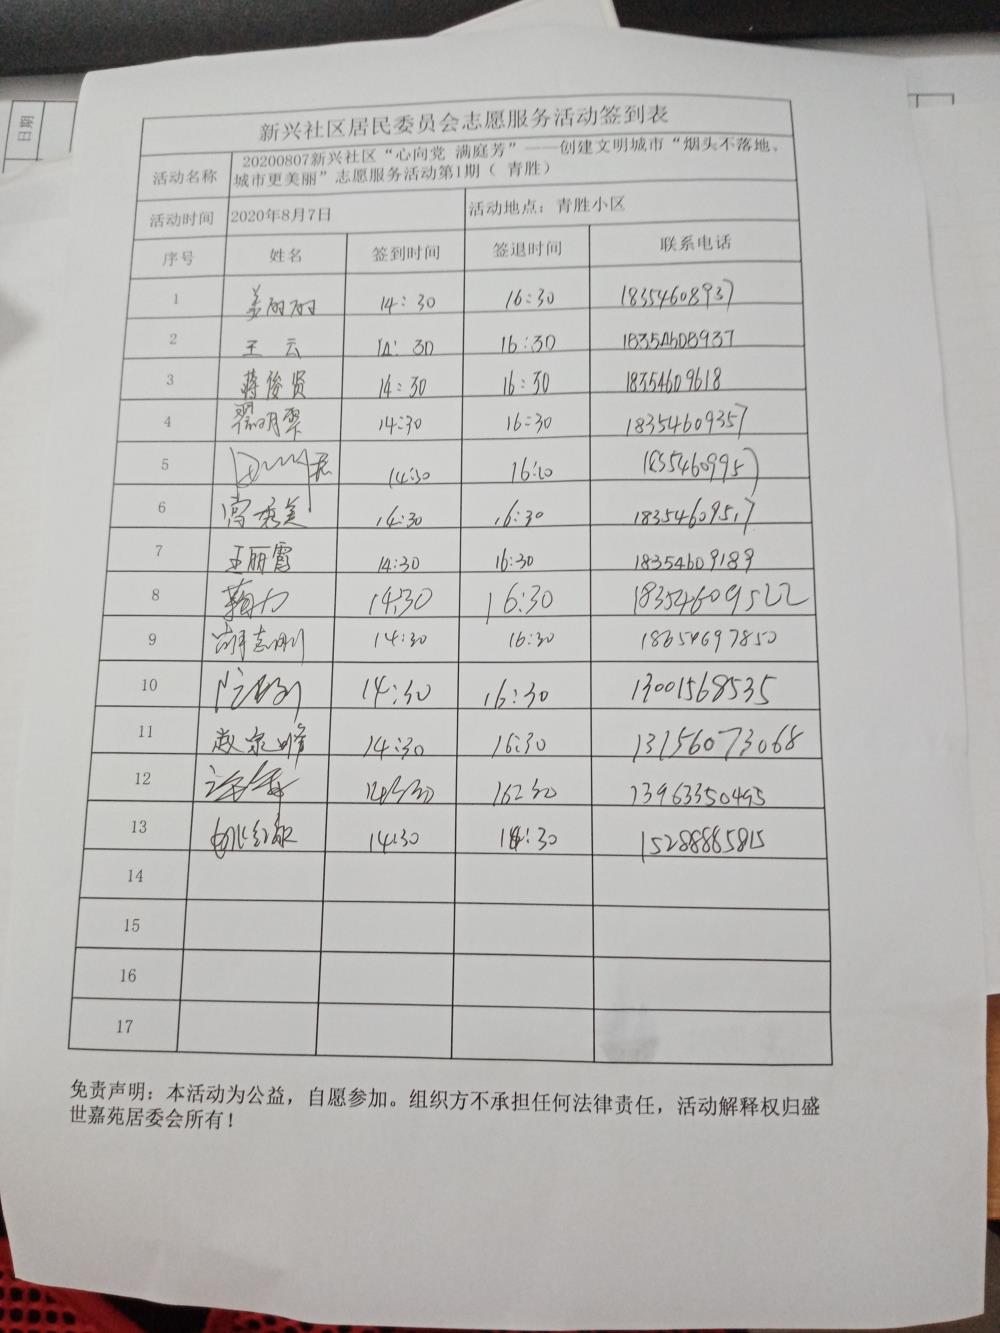 日期
新兴社区居民委员会志愿服务活动签到表
活动名称 20200807新兴社区“心向党 满庭芳”——创建文明城市“烟头不落地、
城市更美丽”志愿服务活动第1期（ 青胜）
活动时间 2020年8月7日 活动地点：青胜小区
序号 姓名 签到时间 签退时间 联系电话
1 姜丽丽 14：30 16：30 18354608937
2 王云 14：30 16：30 18354608937
3 蒋俊贤 14：30 16：30 18354609618
4 翟明翠 14:30 16:30 18354609357
5 14:30
6 14:30 16:30 18354609517
7 王丽霞 14:30 16:30 18354609189
8 14:30 16:30 18354609522
9 胡志刚 14:30 16:30
10 14:30 16:30 13001568535
11 赵泉峰 14:30 16:30 13156073068
12 16:30 13963350495
13 姚红敏 14:30 16:30 15288885815
14
15
16
17
免责声明：本活动为公益，自愿参加。组织方不承担任何法律责任，活动解释权归盛
世嘉苑居委会所有！